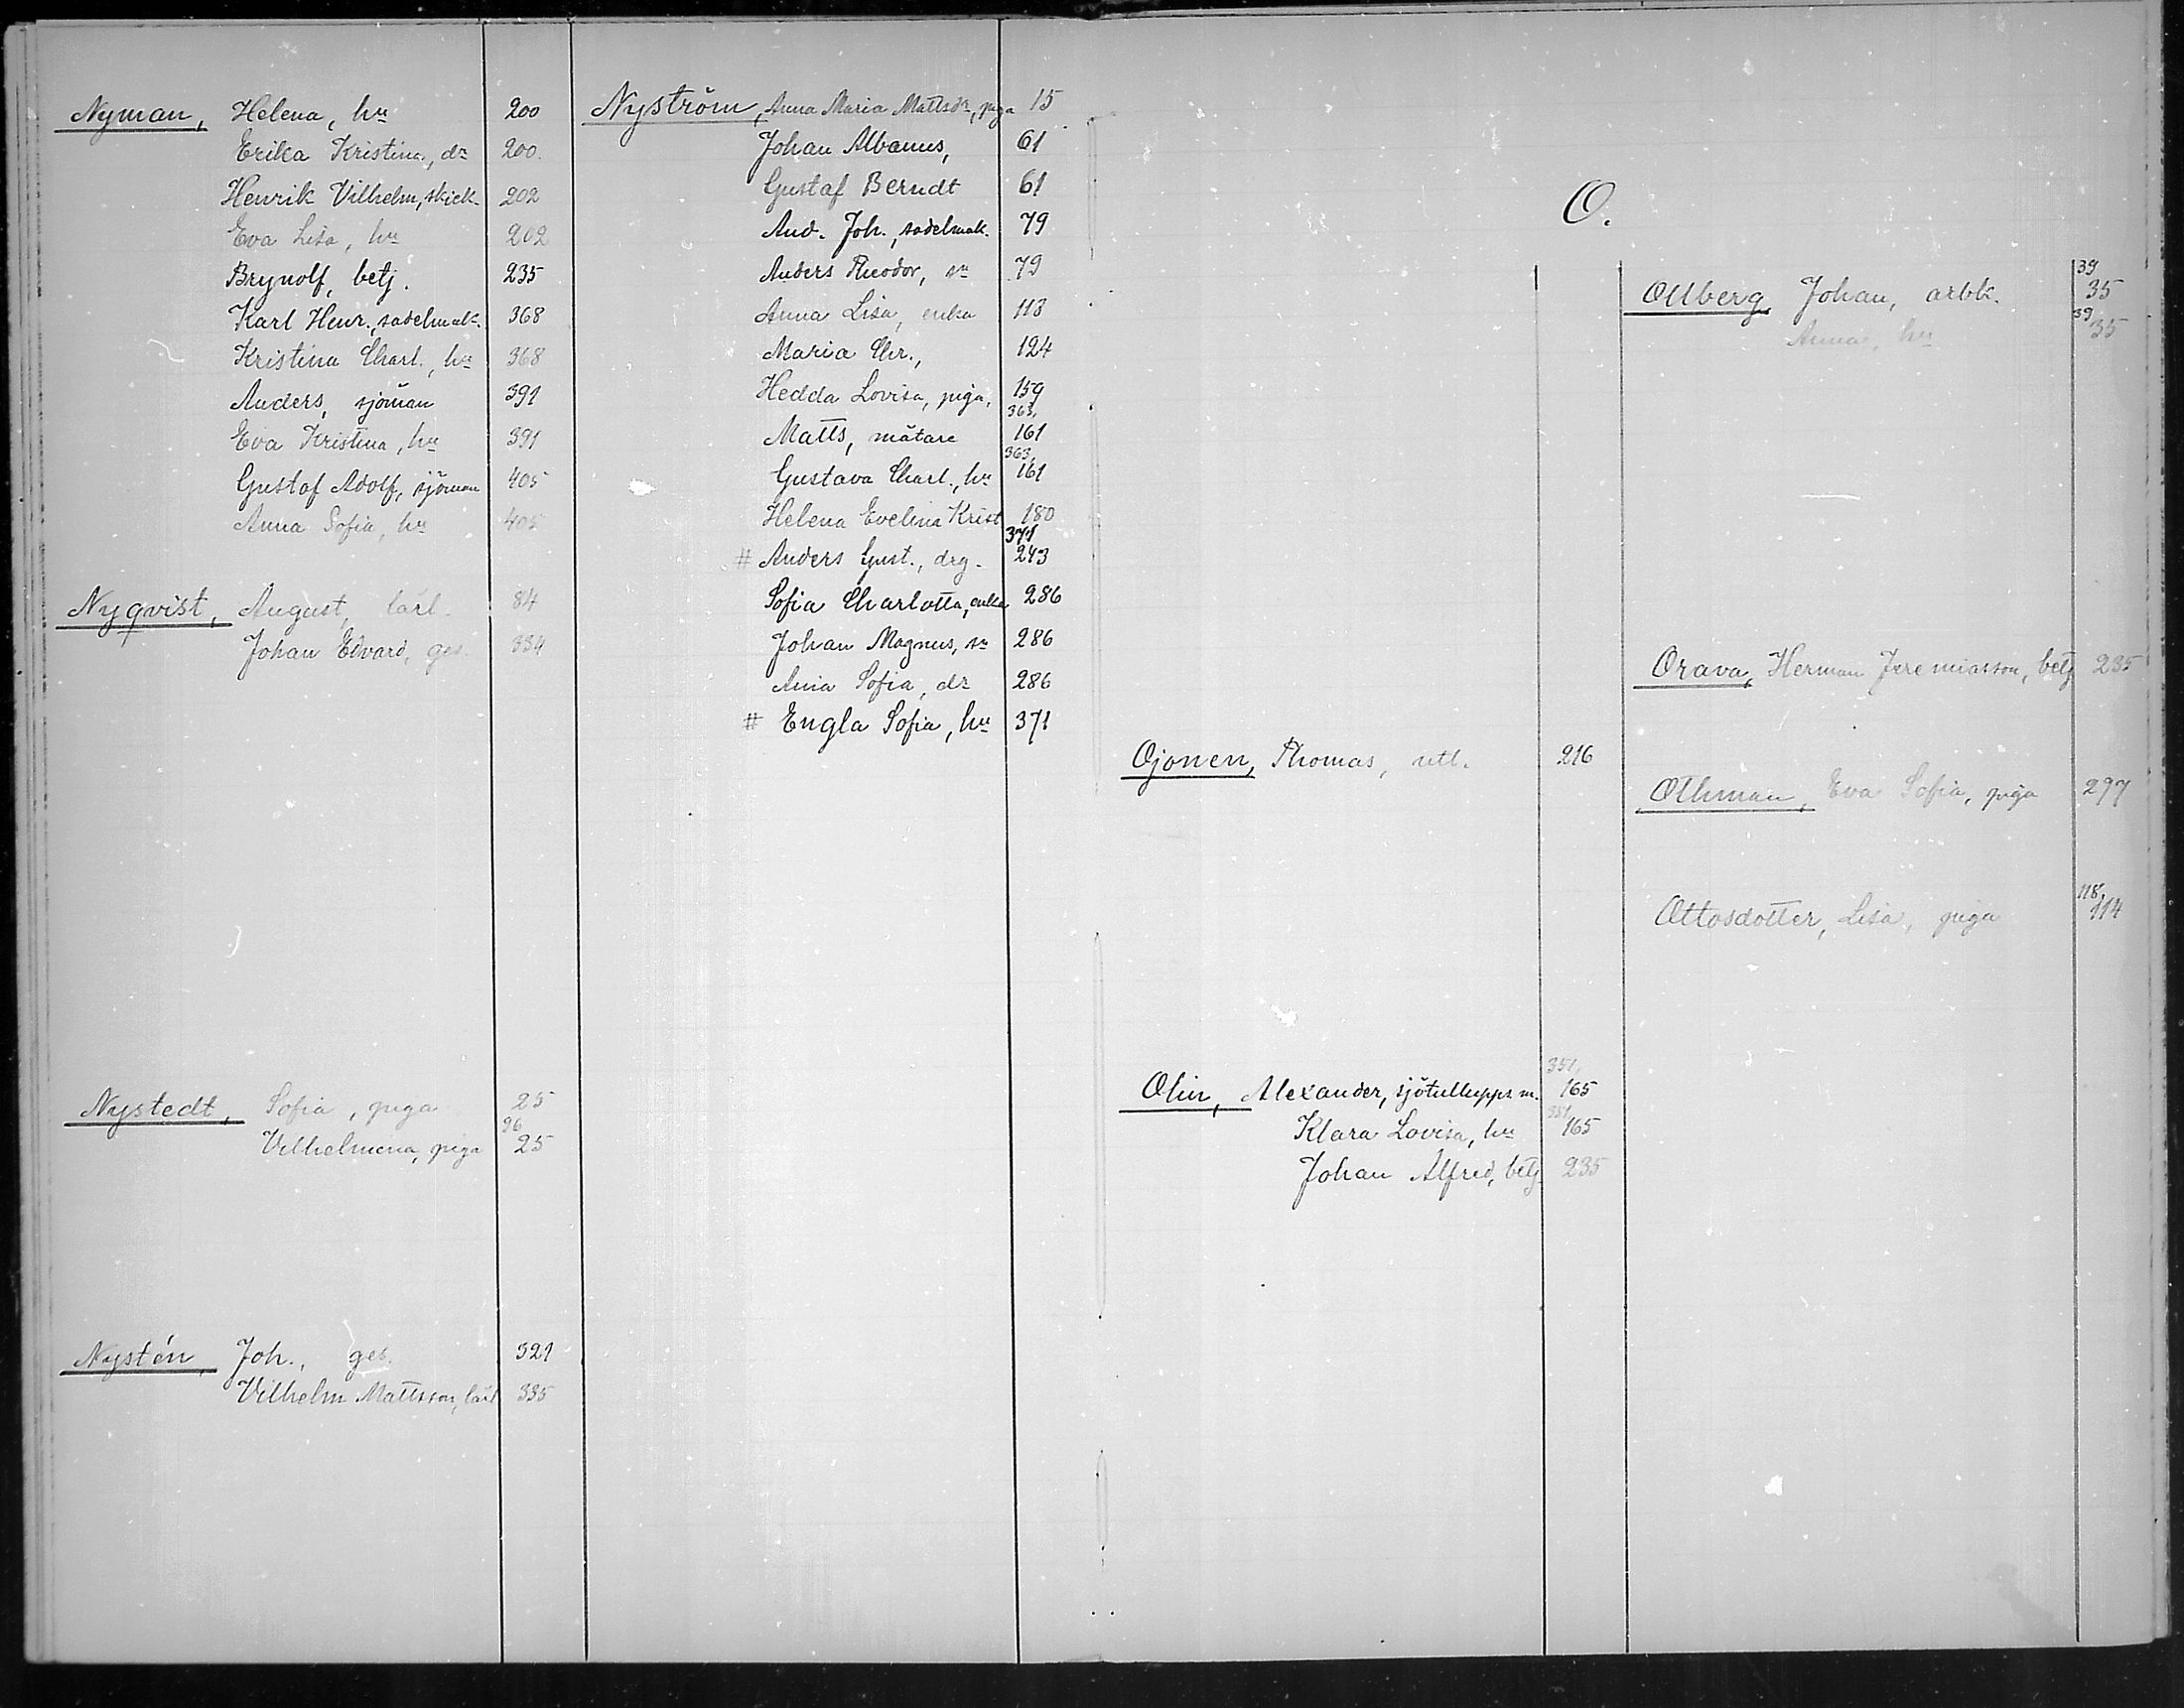 Nyman, Helena, hu 200
Erika Kristina, dr 200.
Henrik Vilhelm, skick. 202
Eva Lisa, hu 202
Brynolf, betj. 235
Karl Henr., sadelmak. 368
Kristina Charl., hu 368
Anders, sjöman 391
Eva Kristina, hu 391
Gustaf Adolf, sjöman 405
Anna Sofia, hu 405
Nyqvist, August, lärl. 84
Johan Edvard, ges. 334
Nystedt, Sofia, piga 25
96
Vilhelmina, piga 25
Nystén, Joh., ges. 321
Vilhelm Mattsson, lärl 335
Nyström, Anna Maria Mattsdr, piga 15
Johan Albanus, 61
Gustaf Berndt 61
And. Joh., sadelmak. 79
Anders Theodor, sn 79
Anna Lisa, enka 113
Maria Chr., 124
Hedda Lovisa, piga, 159
363,
Matts, mätare 161
363,
Gustava Charl., hu 161
Helena Evelina Krist 180
371
# Anders Gust., drg. 243
Sofia Charlotta, enka 286
Johan Magnus, sn 286
Sofia, dr 286
# Engla Sofia, hu 371
O.
Ojonen, Thomas, utl. 216
351,
Olin, Alexander, sjötulluppsm. 165
351,
Klara Lovisa, hu 165
Johan Alfred, betj. 235
39
Ollberg, Johan, arbk. 35
39
Anna, hu 35
Orava, Herman Jeremiasson, betj 235
Othman, Eva Sofia, piga 297
118,
Ottosdotter, Lisa, piga 114